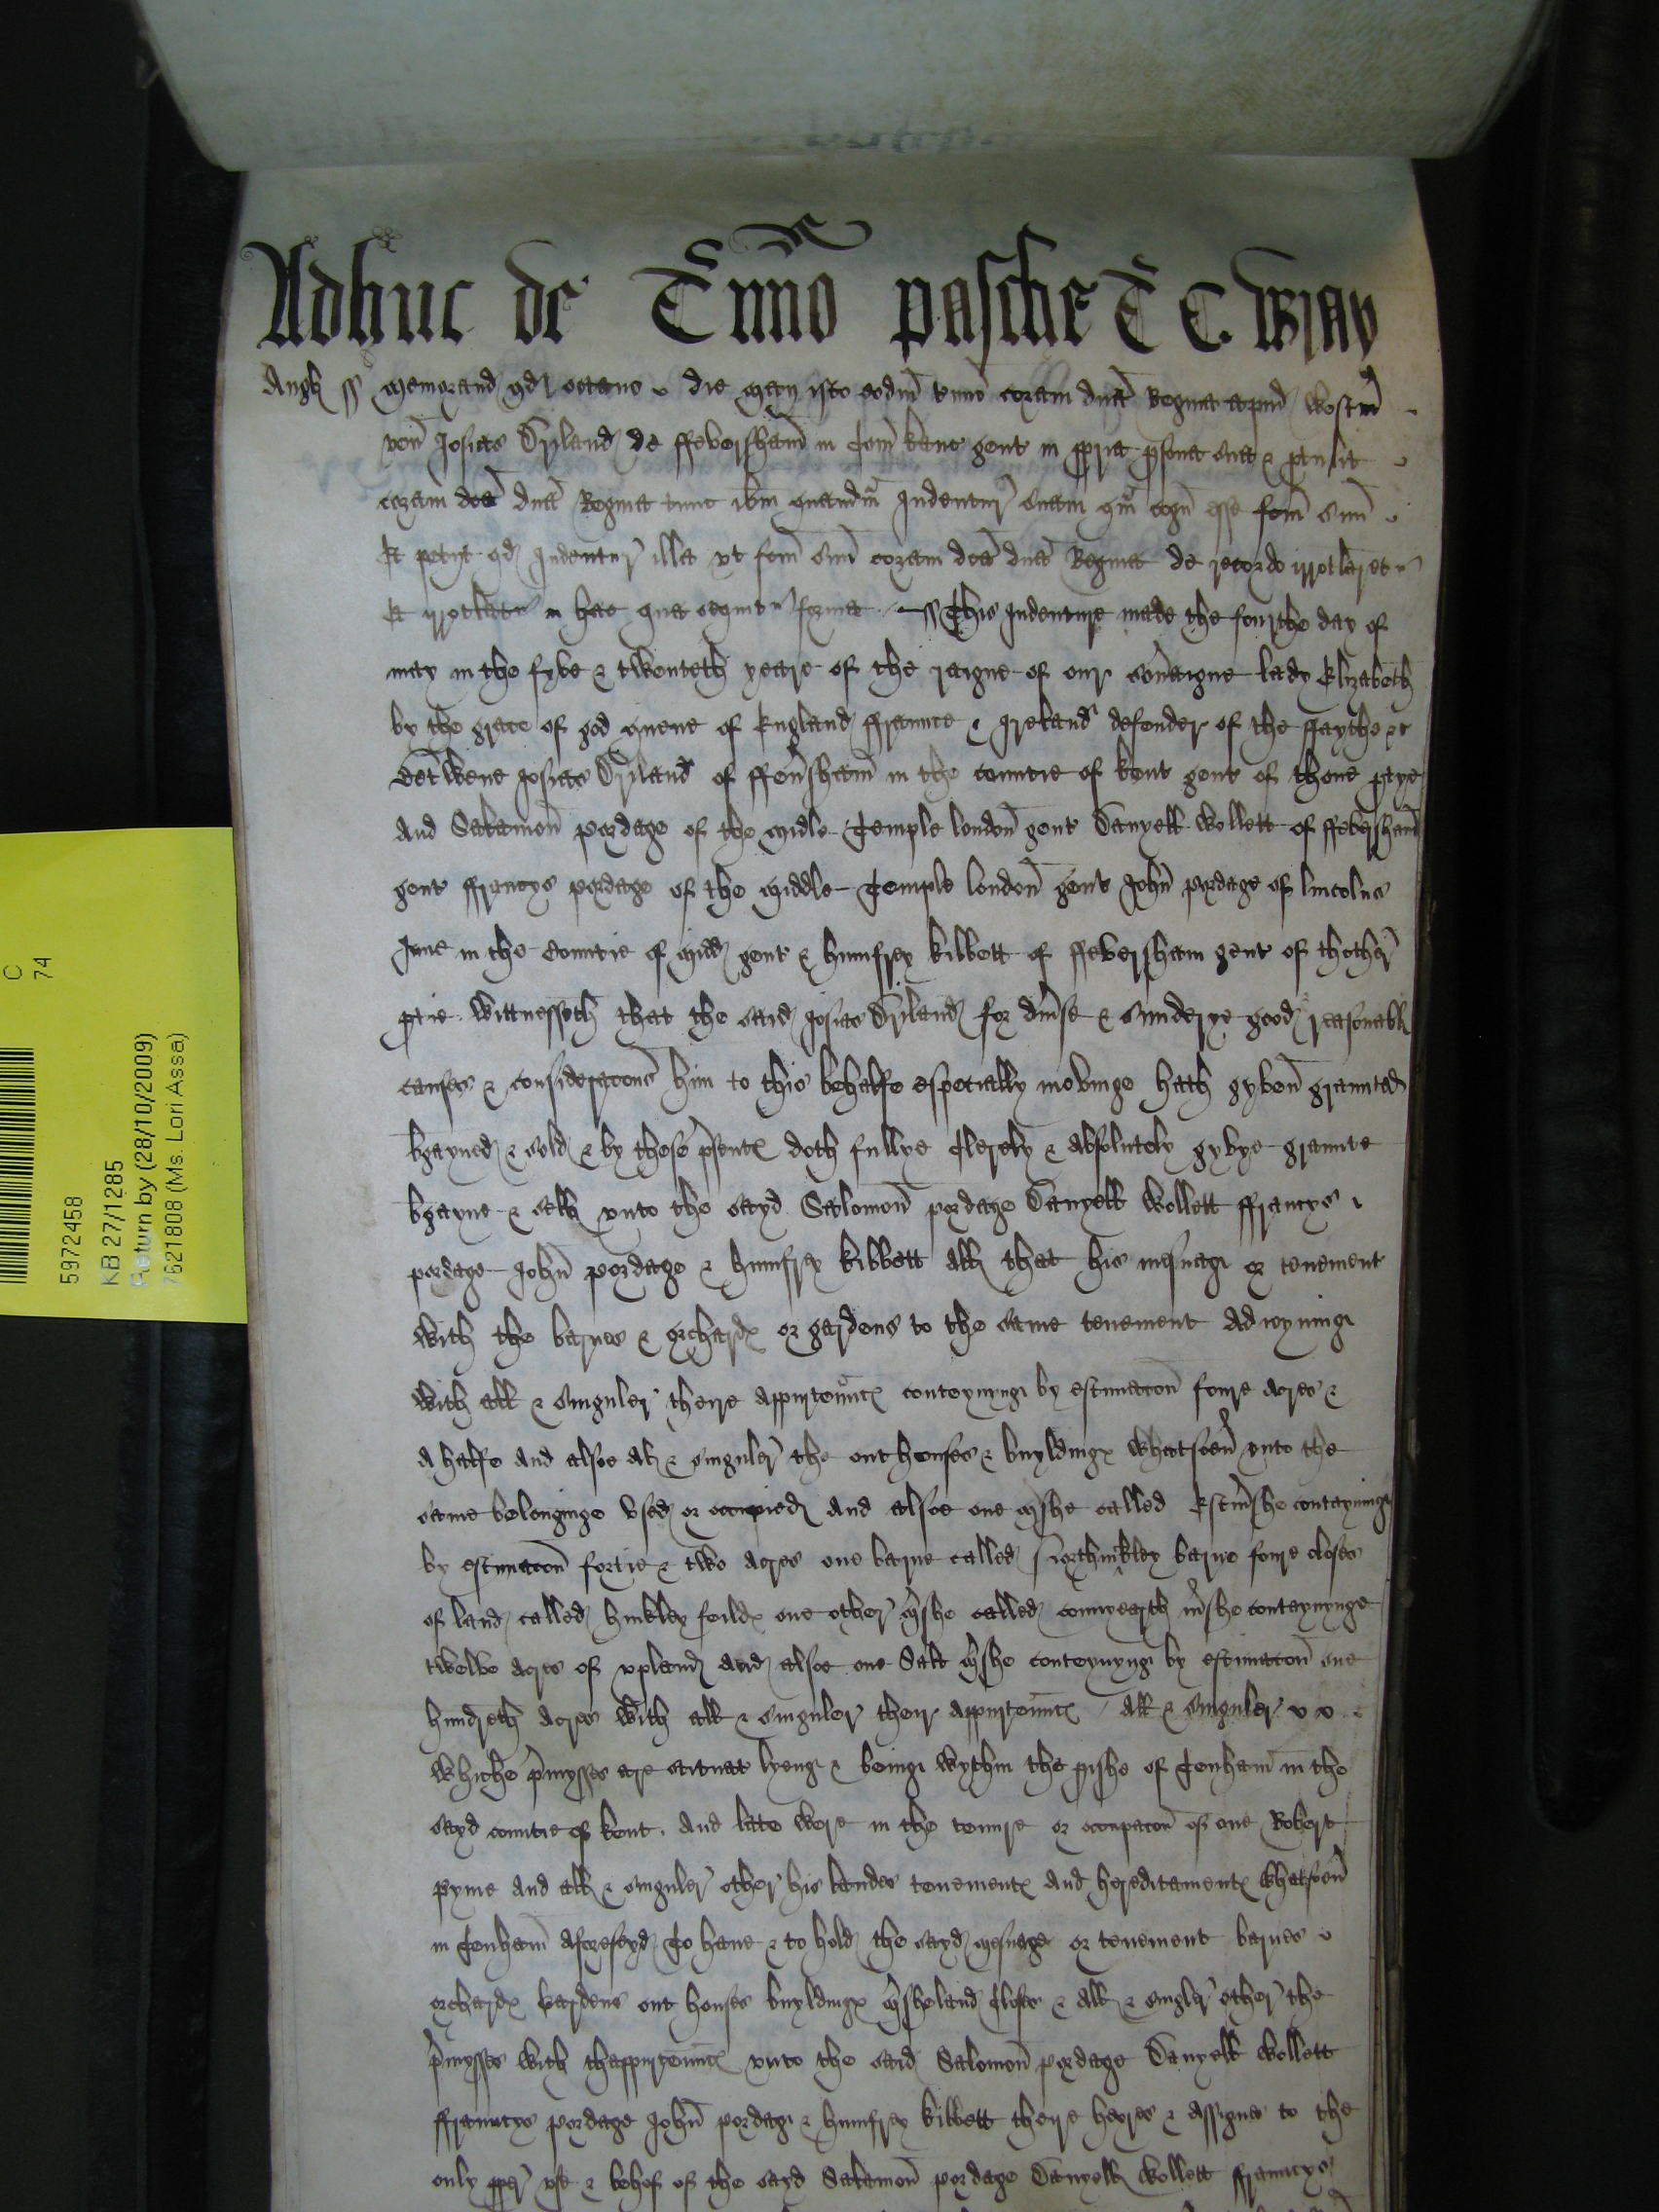 Adhuc de Tmino pasche T C. Wray
Angl ss Memorand qd octavo die Maij isto eodm tmino coram dna Regina apud Westm
ven Josias Driland de ffeversham in Com kanc gent in ppria psona sua & ptulit
coram dca dna Regina tunc ibm quandm Indentur suam qm cogn esse fcm suu
Et petijt qd Indentur illa vt fcm suu coram dca dna Regina de recordo irrotlaretr
Et irrotlatr in hac que sequitr forma ss This Indenture made the fourthe day of
may in the fyve & twenteth yeare of the raigne of our soveraigne lady Elizabeth
by the grace of god quene of England ffraunce & Ireland defender of the ffaythe &c
Betwene Josias Driland of ffevsham in the countie of kent gent of thone ptye
And Salamon pordage of the midle Temple london gent Danyell Wollett of ffeversham
gent ffrancys pordage of the Middle Temple london gent John pordage of lincolns
Inne in the Countie of Midd gent & humfrey kibbett of ffeversham gent of thother
ptie Wittnesseth that the said Josias Driland for divse & sunderye good reasonable
causes & consideracons him to this behalfe especially movinge hath gyven graunted
bgayned & sold & by these psents doth fullye Clerely & Absolutely gyve graunte
bgayne & sell vnto the sayd Salomon pordage Danyell Wollett ffrancys
pordage John pordage & humfrey kibbett All that his mesuage or tenement
With the barnes & orchards or gardens to the same tenement Adioyninge
With all & singuler theire Appurtennces conteynynge by estimacon foure Acres &
A halfe And alsoe All & singuler the out houses & buyldings whatsoev vnto the
same belonginge Vsed or occupied And alsoe one Mshe called Estmshe contayninge
by estimacon fortie & two Acres one barne called Northinkley barne foure closes
of land called hinkley feilds one other Mshe called mshe contaynynge
twelve Acres of vpland And alsoe one Salt Mshe conteynynge by estimacon one
hundreth Acres With all & singuler their Appurtennces All & Singuler
Whiche pmysses are situat lyenge & beinge wythin the pishe of Tenham in the
sayd countie of kent. And late were in the tenure or occupacon of one Robert
pyme And all & singuler other his landes tenements And hereditaments whatsoev
in Tenham Aforesayd To have & to hold the sayd mesuage or tenement barnes
orchards Gardens out houses buyldings Mshe land Closes & All & singler other the
pmysses With thappurtennces vnto the said Salomon pordage Danyell Wollett
ffrauncys pordage John pordage & humfrey kibbett theire heyres & Assignes to the
only pper vse & behof of the sayd Salamon pordage Danyell Wollett ffrauncys
C
74
5972458
KB 27/1285
Return by (28/10/2009)
7621808 (Ms. Lori Assa)